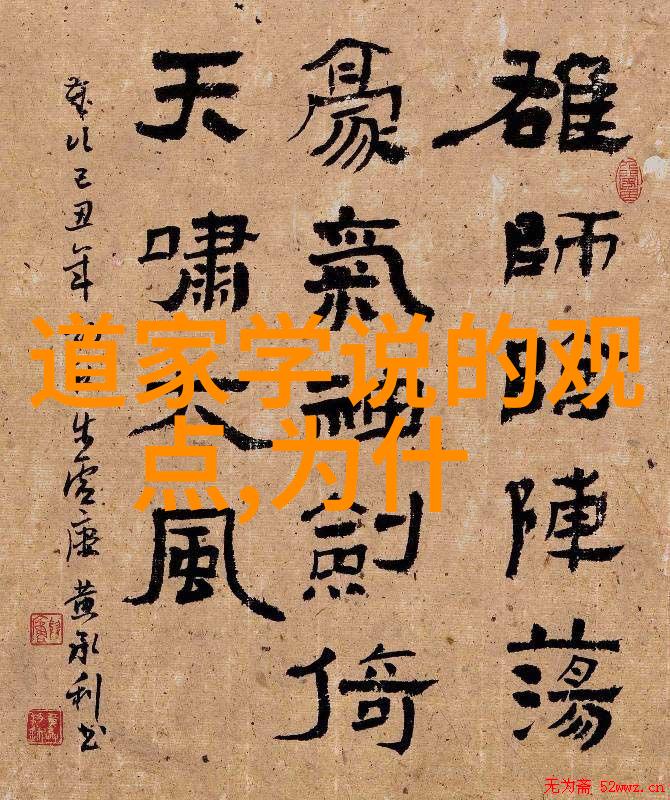 雄師陣陣蕩
豪氣神劍倚
天嘯大風
歲次己丑年
黃承利书
道家学说的观
点,为什
无为斋 52wwz.cn